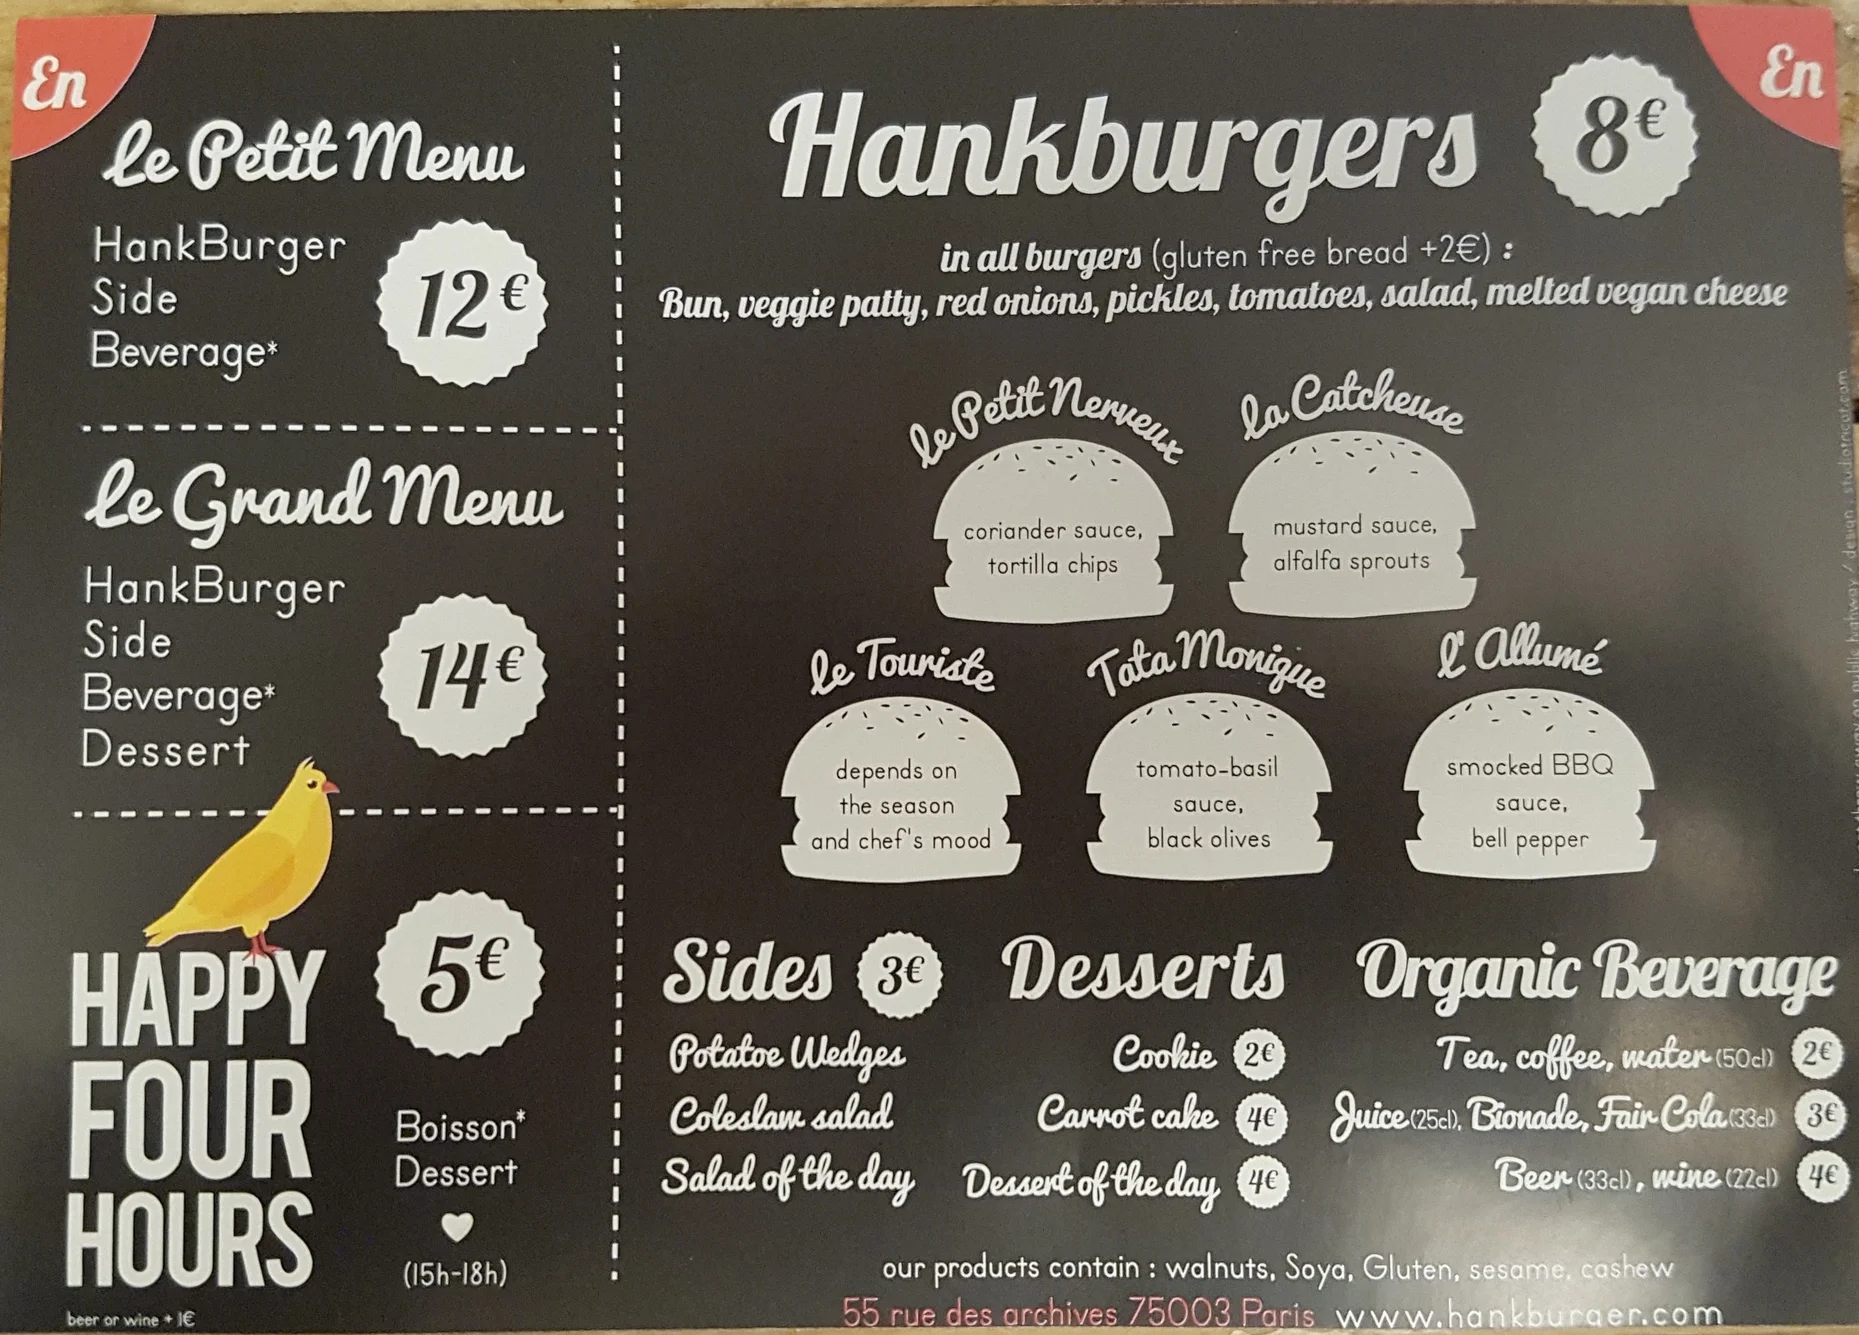 En
le Petit Menu
HankBurger
Side
Beverage*
12€
le Grand Menu
HankBurger
Side
Beverage*
Dessert
14€
HAPPY
FOUR
HOURS
5€
Boisson*
Dessert
(15h-18h)
beer or wine + 1€
En
Hankburgers 8€
in all burgers (gluten free bread +2€) :
Bun, veggie patty, red onions, pickles, tomatoes, salad, melted vegan cheese
le Petit Nerveux
coriander sauce,
tortilla chips
la Catcheuse
mustard sauce,
alfalfa sprouts
le Touriste
depends on
the season
and chef's mood
Tata Monique
tomato-basil
sauce,
black olives
l'Allumé
smocked BBQ
sauce,
bell pepper
Sides 3€
Potatoe Wedges
Coleslaw salad
Salad of the day
Desserts
Cookie 2€
Carrot cake 4€
Dessert of the day 4€
Organic Beverage
Tea, coffee, water (50cl) 2€
Juice (25cl), Bionade, Fair Cola (33cl) 3€
Beer (33cl), wine (22cl) 4€
our products contain : walnuts, Soya, Gluten, sesame, cashew
55 rue des archives 75003 Paris www.hankburger.com
/ design : studiotricot.com